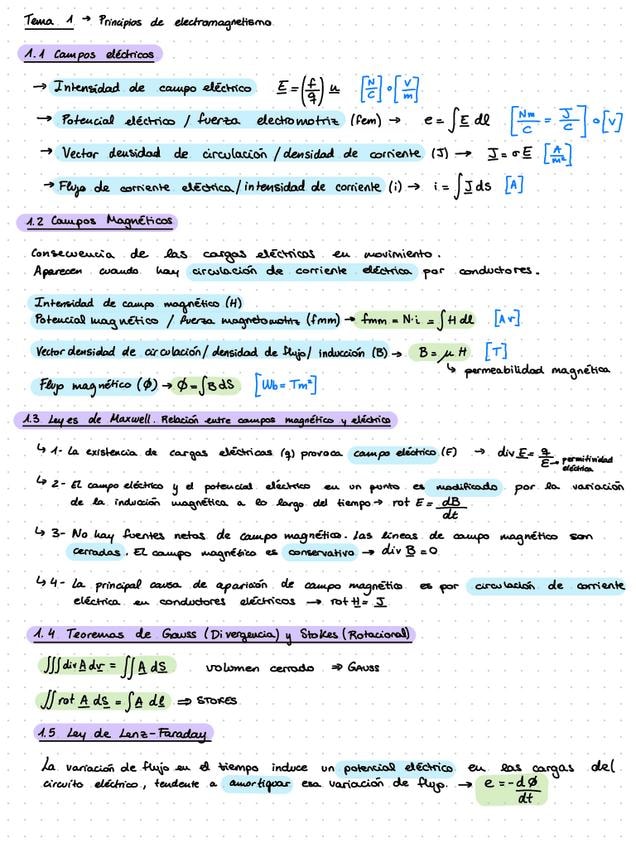 Tema 1 → Principios de electromagnetismo
1.1 Campos eléctricos
→ Intensidad de campo eléctrico E = (f/q) u [N/C] o [V/m]
→ Potencial eléctrico / fuerza electromotriz (fem) → e = ∫ E dl [Nm/C = J/C] o [V]
→ Vector densidad de circulación / densidad de corriente (J) → J = σ E [A/m²]
→ Flujo de corriente eléctrica / intensidad de corriente (i) → i = ∫ J ds [A]
1.2 Campos Magnéticos
Consecuencia de las cargas eléctricas en movimiento.
Aparecen cuando hay circulación de corriente eléctrica por conductores.
Intensidad de campo magnético (H)
Potencial magnético / fuerza magnetomotriz (fmm) → fmm = N·i = ∫ H dl [Av]
Vector densidad de circulación / densidad de flujo / inducción (B) → B = μ H [T]
↳ permeabilidad magnética
Flujo magnético (Φ) → Φ = ∫ B dS [Wb = Tm²]
1.3 Leyes de Maxwell. Relación entre campos magnético y eléctrico
↳ 1- La existencia de cargas eléctricas (q) provoca campo eléctrico (E) → div E = q/ε → permitividad eléctrica
↳ 2- El campo eléctrico y el potencial eléctrico en un punto es modificado por la variación
de la inducción magnética a lo largo del tiempo → rot E = dB/dt
↳ 3- No hay fuentes netas de campo magnético. Las líneas de campo magnético son
cerradas. El campo magnético es conservativo → div B = 0
↳ 4- La principal causa de aparición de campo magnético es por circulación de corriente
eléctrica en conductores eléctricos → rot H = J
1.4 Teoremas de Gauss (Divergencia) y Stokes (Rotacional)
∭ div A dv = ∬ A dS volumen cerrado ⇒ GAUSS
∬ rot A dS = ∫ A dl ⇒ STOKES
1.5 Ley de Lenz-Faraday
La variación de flujo en el tiempo induce un potencial eléctrico en las cargas del
circuito eléctrico, tendente a amortiguar esa variación de flujo. → e = - dΦ/dt